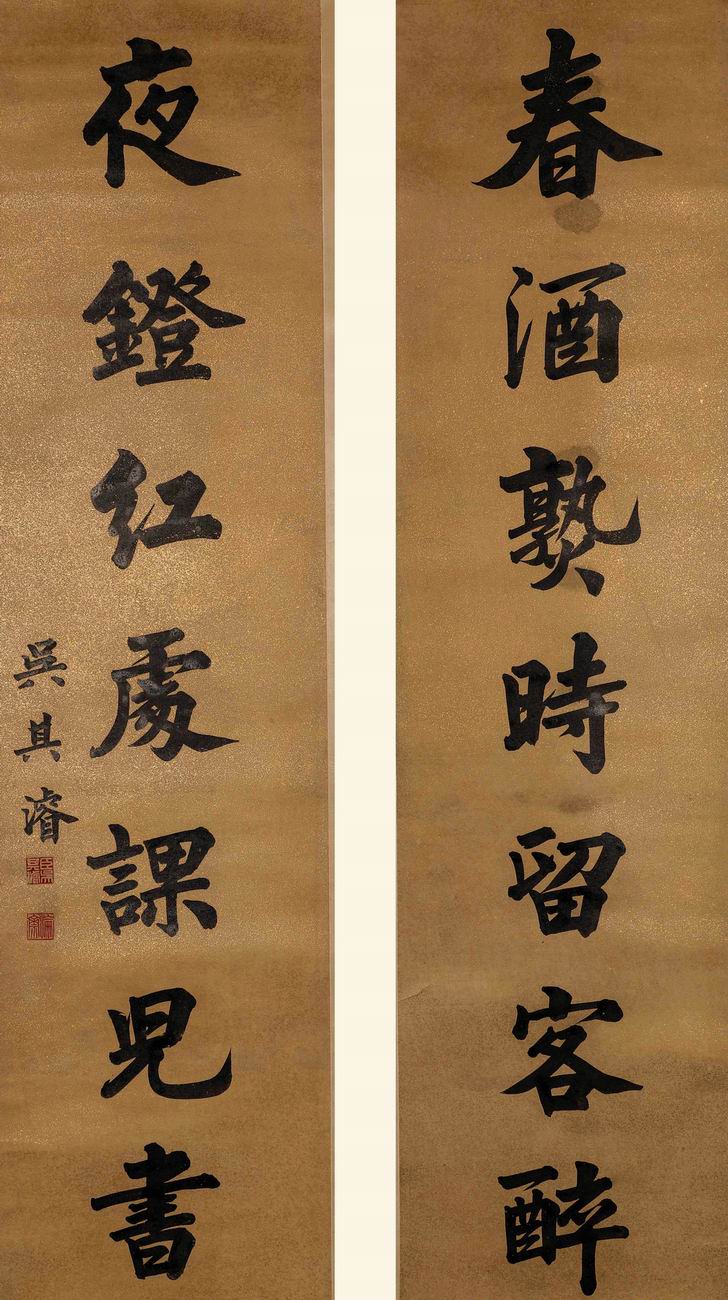 春酒熟時留客醉
夜鐙紅處課兒書
吳其濬